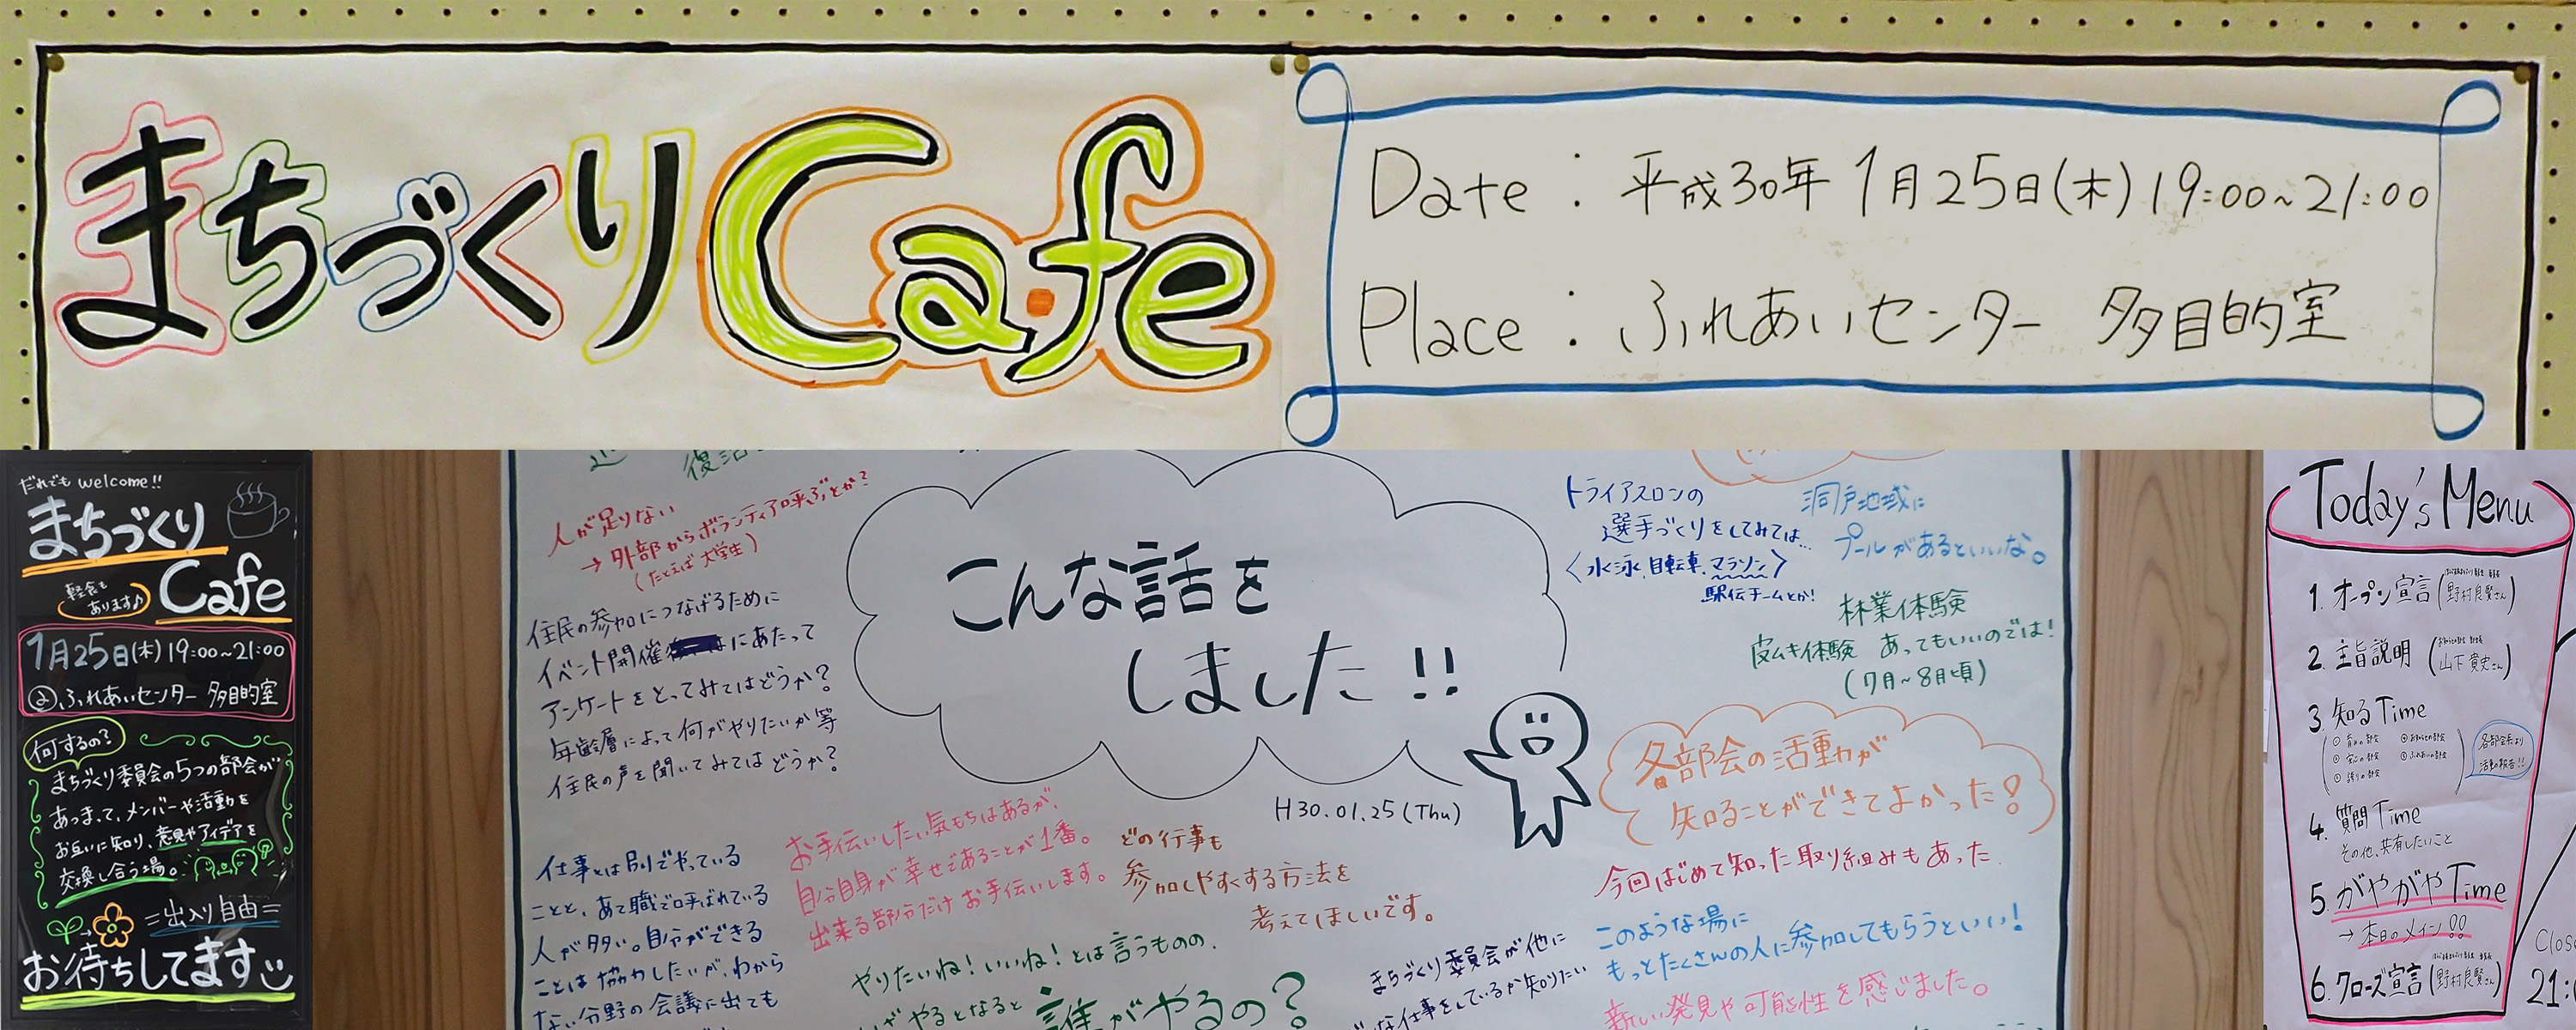 まちづくりCafe
Date：平成30年 1月25日(木) 19:00～21:00
Place：ふれあいセンター 多目的室
だれでも welcome!!
まちづくり
軽食も
あります♪
Cafe
1月25日(木) 19:00～21:00
@ふれあいセンター 多目的室
何するの?
まちづくり委員会の5つの部会が
あつまって、メンバーや活動を
お互いに知り、意見やアイデアを
交換し合う場。
=出入り自由=
お待ちしてます
人が足りない
→外部からボランティア呼ぶとか?
(たとえば大学生)
住民の参加につなげるために
イベント開催にあたって
アンケートをとってみてはどうか?
年齢層によって何がやりたいか等
住民の声を聞いてみてはどうか?
仕事とは別でやっている
ことと、あて職で呼ばれている
人が多い。自分ができる
ことは協力したいが、わから
ない分野の会議に出ても
こんな話を
しました!!
H30.01.25(Thu)
お手伝いしたい気もちはあるが、
自分自身が幸せであることが1番。
出来る部分だけお手伝いします。
どの行事も
参加しやすくする方法を
考えてほしいです。
やりたいね!いいね!とは言うものの、
いざやるとなると
誰がやるの?
まちづくり委員会が他に
な仕事をしているか知りたい
トライアスロンの
選手づくりをしてみては…
〈水泳、自転車、マラソン〉
駅伝チームとか!
洞戸地域に
プールがあるといいな。
林業体験
皮ムキ体験 あってもいいのでは!
(7月～8月頃)
各部会の活動が
知ることができてよかった!
今回はじめて知った取り組みもあった.
このような場に
もっとたくさんの人に参加してもらうといい!
新しい発見や可能性を感じました。
Today's Menu
1. オープン宣言(野村良賢さん)
2. 主旨説明 (山下貴史さん)
3. 知るTime
各部会長より
活動の報告!!
4. 質問Time
その他、共有したいこと
5. がやがやTime
→本日のメイン!!
6. クローズ宣言(野村良賢さん)